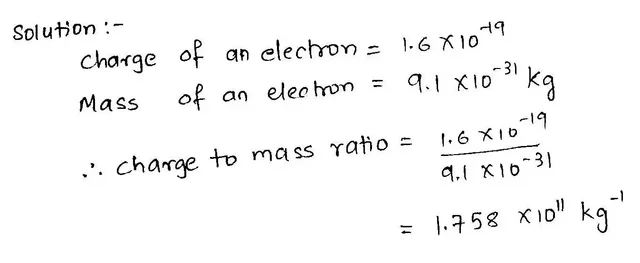 Solution :-
Charge of an electron = 1.6 × 10⁻¹⁹
Mass of an electron = 9.1 × 10⁻³¹ kg
∴ charge to mass ratio = 1.6 × 10⁻¹⁹ / 9.1 × 10⁻³¹
= 1.758 × 10¹¹ kg⁻¹